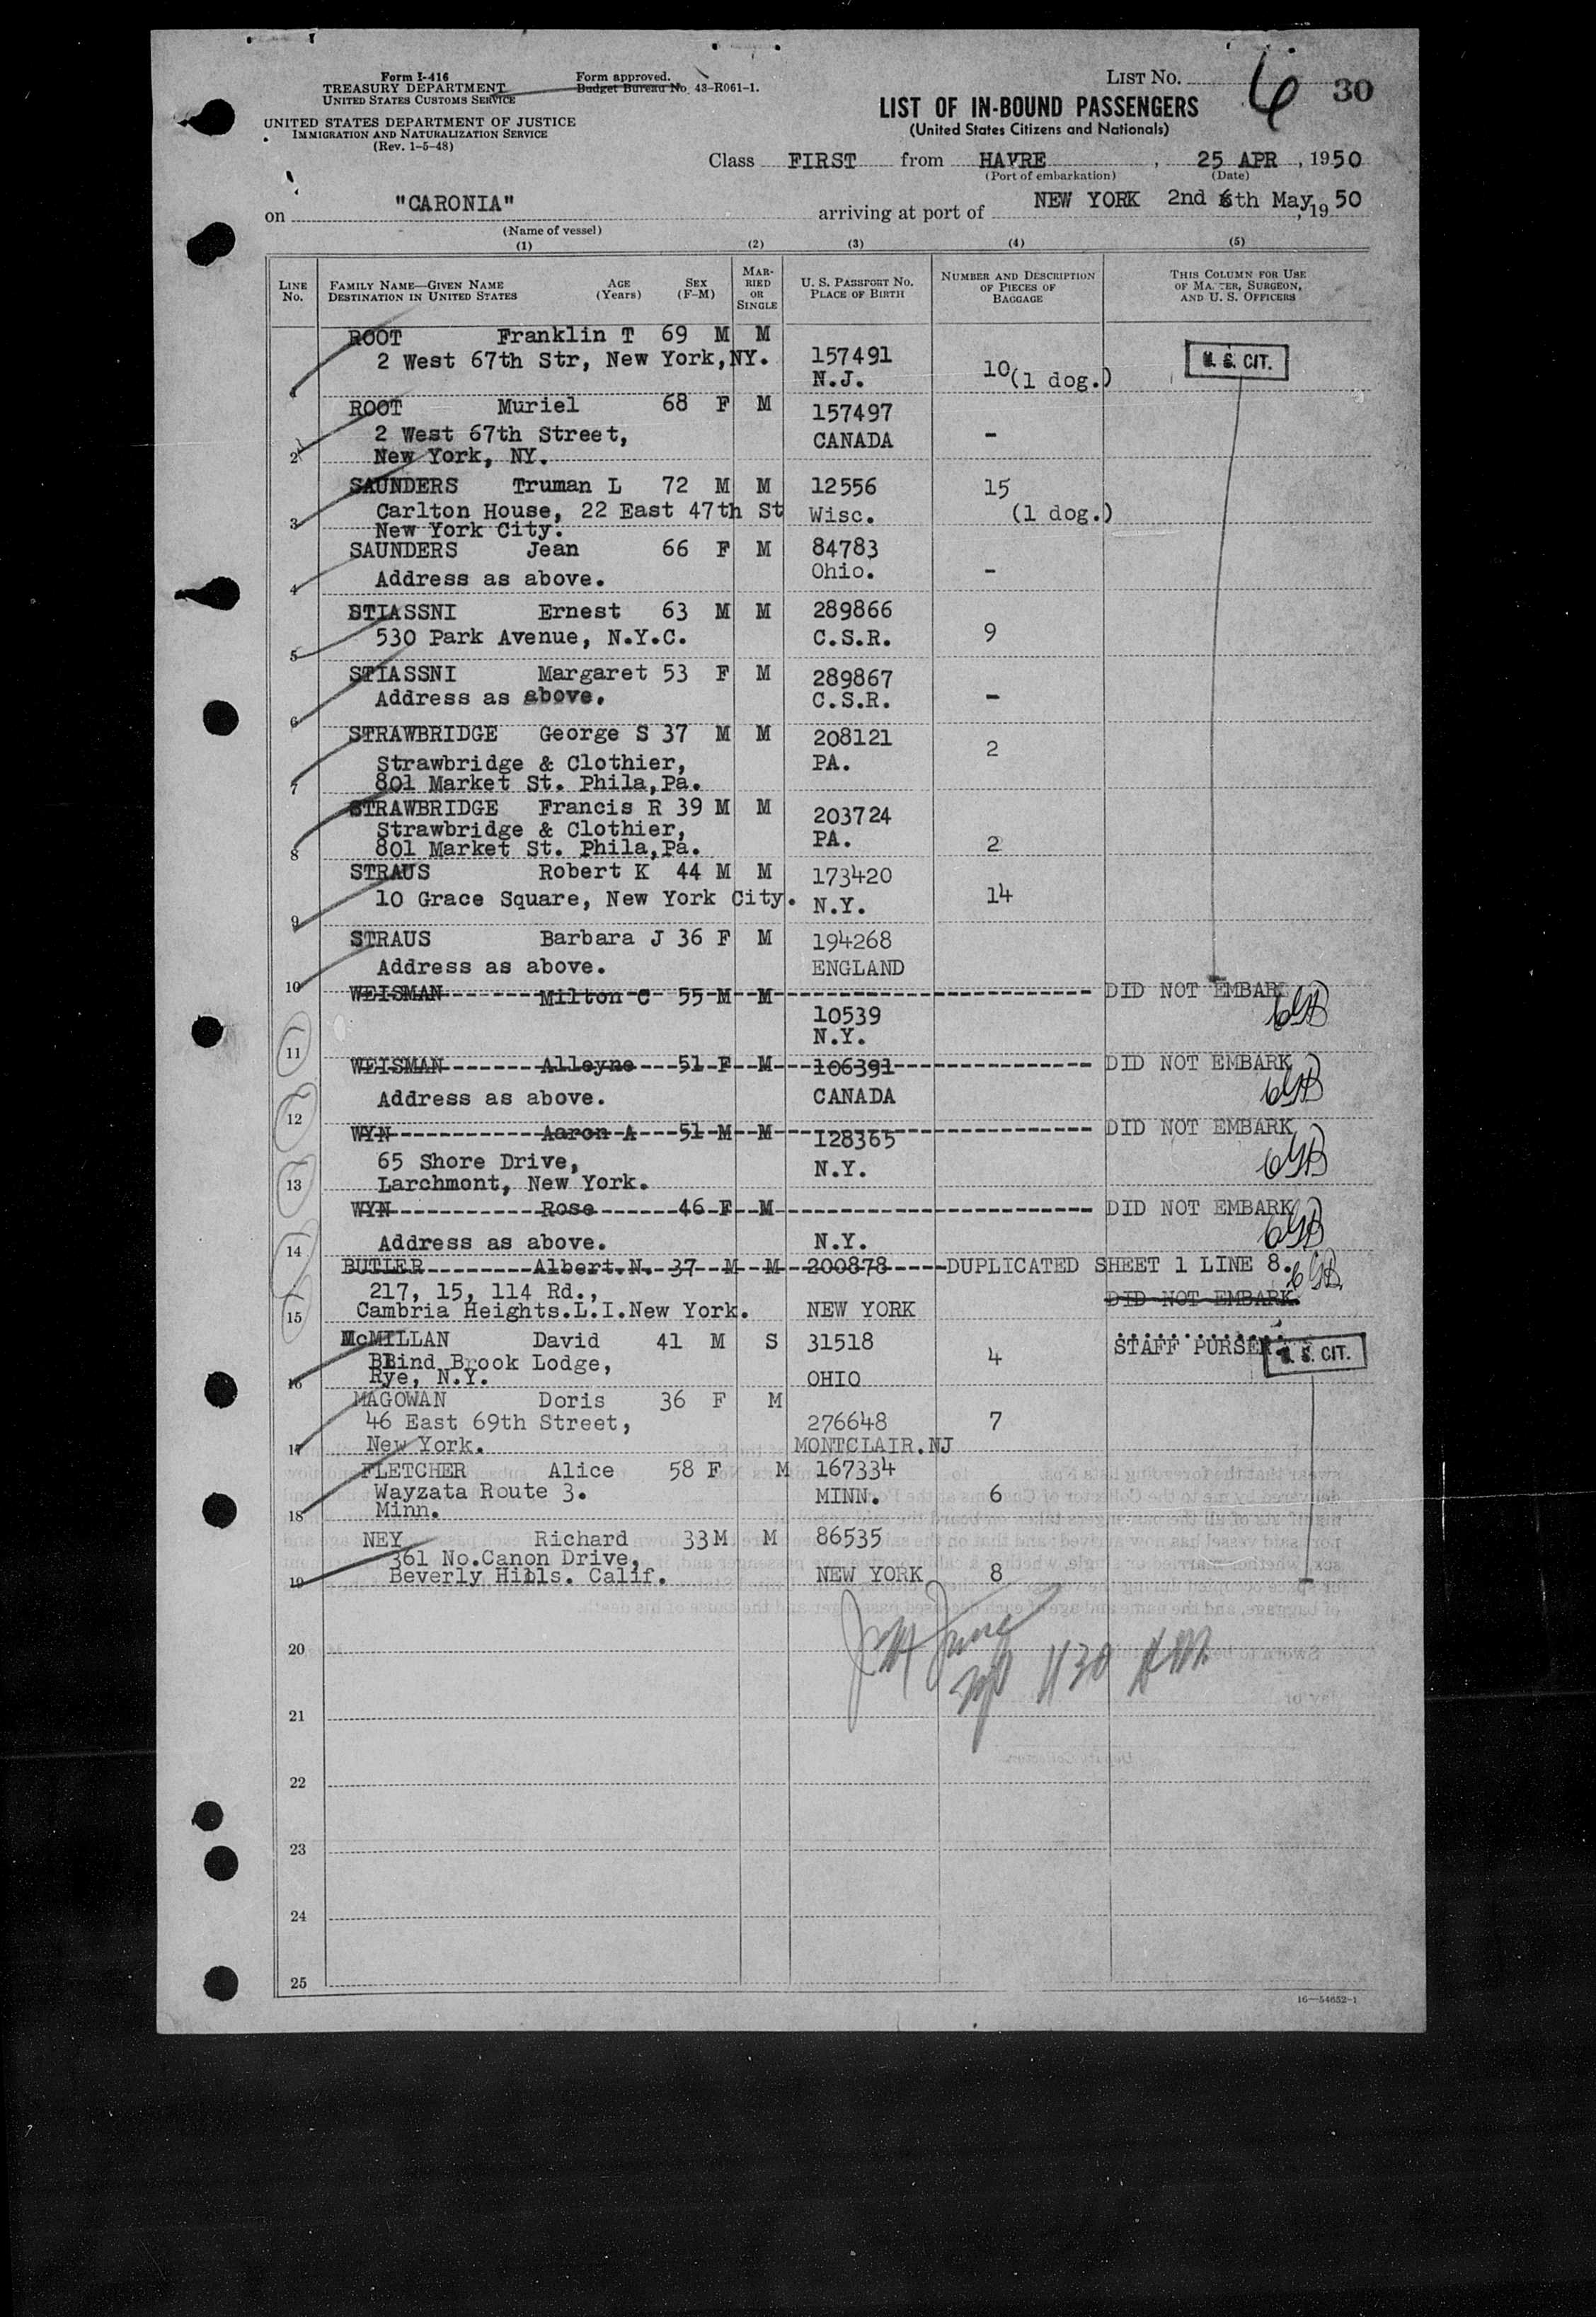 Form I-416
TREASURY DEPARTMENT
UNITED STATES CUSTOMS SERVICE
Form approved.
Budget Bureau No. 43-R061-1.
UNITED STATES DEPARTMENT OF JUSTICE
IMMIGRATION AND NATURALIZATION SERVICE
(Rev. 1-5-48)
LIST NO. 6 30
LIST OF IN-BOUND PASSENGERS
(United States Citizens and Nationals)
Class FIRST from HAVRE, 25 APR, 1950
(Port of embarkation) (Date)
on "CARONIA" arriving at port of NEW YORK 2nd 6th May, 1950
(Name of vessel)
(1) (2) (3) (4) (5)
LINE NO. FAMILY NAME—GIVEN NAME DESTINATION IN UNITED STATES AGE (Years) SEX (F-M) MARRIED OR SINGLE U. S. PASSPORT NO. PLACE OF BIRTH NUMBER AND DESCRIPTION OF PIECES OF BAGGAGE THIS COLUMN FOR USE OF MASTER, SURGEON, AND U. S. OFFICERS
ROOT Franklin T 69 M M
2 West 67th Str, New York,NY. 157491 U. S. CIT.
1 N.J. 10(1 dog.)
ROOT Muriel 68 F M 157497
2 West 67th Street, CANADA -
2 New York, NY.
SAUNDERS Truman L 72 M M 12556 15
Carlton House, 22 East 47th St Wisc. (1 dog.)
3 New York City.
SAUNDERS Jean 66 F M 84783
Ohio. -
4 Address as above.
STIASSNI Ernest 63 M M 289866
530 Park Avenue, N.Y.C. C.S.R. 9
5
STIASSNI Margaret 53 F M 289867
Address as above. C.S.R. -
6
STRAWBRIDGE George S 37 M M 208121 2
Strawbridge & Clothier, PA.
7 801 Market St. Phila,Pa.
STRAWBRIDGE Francis R 39 M M 203724
Strawbridge & Clothier, PA.
8 801 Market St. Phila,Pa. 2
STRAUS Robert K 44 M M 173420
10 Grace Square, New York City. N.Y. 14
9
STRAUS Barbara J 36 F M 194268
Address as above. ENGLAND
10
WEISMAN Milton C 55 M M DID NOT EMBARK
10539
N.Y.
11
WEISMAN Alleyne 51 F M 106391 DID NOT EMBARK
Address as above. CANADA
12
WYN Aaron A 51 M M 128365 DID NOT EMBARK
65 Shore Drive, N.Y.
13 Larchmont, New York.
WYN Rose 46 F M DID NOT EMBARK
14 Address as above. N.Y.
BUTLER Albert.N. 37 M M 200878 DUPLICATED SHEET 1 LINE 8.
217, 15, 114 Rd., DID NOT EMBARK.
15 Cambria Heights.L.I.New York. NEW YORK
McMILLAN David 41 M S 31518 STAFF PURSER U. S. CIT.
Blind Brook Lodge, 4
16 Rye, N.Y. OHIO
MAGOWAN Doris 36 F M
46 East 69th Street, 276648 7
17 New York. MONTCLAIR.NJ
FLETCHER Alice 58 F M 167334
Wayzata Route 3. MINN. 6
18 Minn.
NEY Richard 33 M M 86535
361 No.Canon Drive,
19 Beverly Hills. Calif. NEW YORK 8
20
1130 AM
21
22
23
24
25
16—54652-1